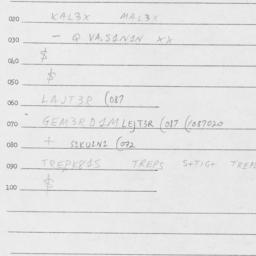 020 KAL3X MAL3X
030 — Q VA,S1N1N XX
040 $
050 $
060 LAJT3R (087
070 GEM3RD1MLEJT3R (087 (1087020
080 + S1KU1N1 (072
090 TREPKR1S TREPS S+TIG+ TREPS
100 $